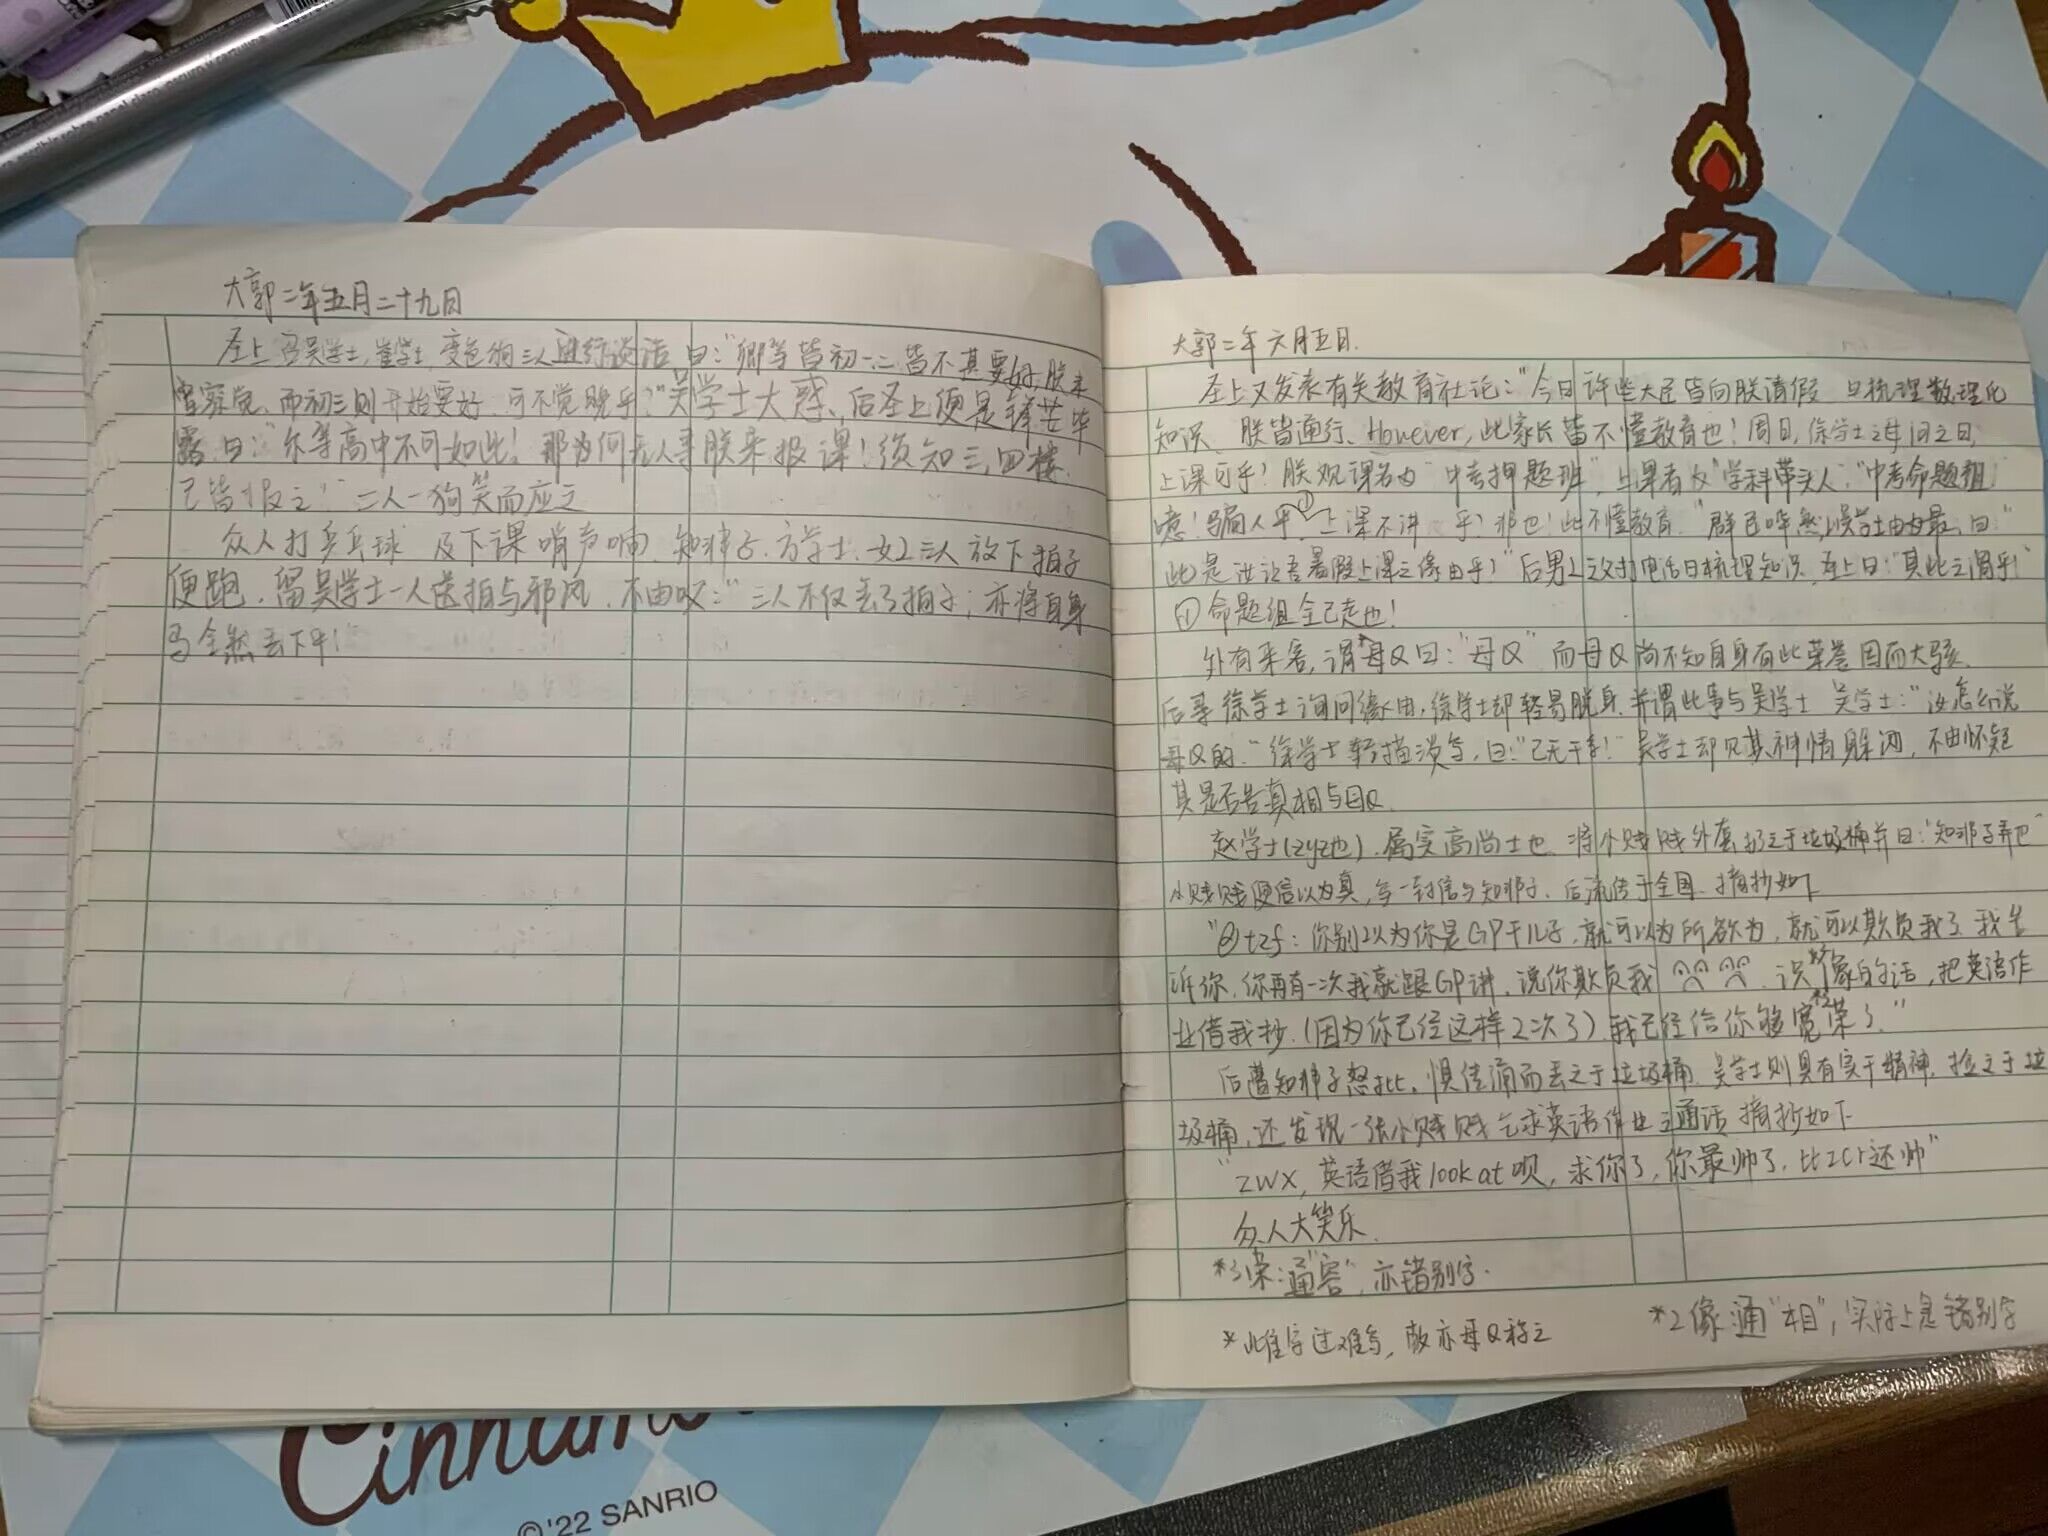 大郭二年五月二十九日
圣上与吴学士,崔学士,变色狗三人进行谈话,曰:"卿等皆初一二皆不甚要好,朕未
尝察觉,而初三则开始要好,可不觉晚乎?"吴学士大惑、后圣上便是锋芒毕
露,曰:"尔等高中不可如此!那为何无人寻朕来报课!须知三、四楼,
已皆报之!"二人一狗笑而应之
众人打乒乓球 及下课哨声响,知非子、方学士、女2三人放下拍子
便跑,留吴学士一人送拍与邪风,不由叹:"三人不仅丢了拍子;亦将自身
马全然丢下乎!
大郭二年六月五日.
圣上又发表有关教育社论:"今日许些大臣皆向朕请假,曰梳理数理化
知识、朕皆通行、However,此家长皆不懂教育也!周日,徐学士之母问之曰,
上课可乎!朕观课名为"中考押题班",上课者为"学科带头人","中考命题组"
噫!骗人乎①!上课不讲 乎!非也!此不懂教育."群臣哗然,吴学士由为最,曰:"
此是汝让吾暑假上课之缘由乎!"后男2之父打电话曰梳理知识,圣上曰:"其此之谓乎!"
①命题组全已走也!
外有来客,谓*母Q曰:"母Q" 而母Q尚不知自身有此荣誉因而大骇.
后寻徐学士询问缘由,徐学士却轻易脱身,并谓此事与吴学士 吴学士:"汝怎么说
母Q的."徐学士轻描淡写,曰:"已无干系!"吴学士却见其神情躲闪,不由怀疑
其是否告真相与母Q.
赵学士(zyz也),属实高尚士也,将小贱贱外套扔之于垃圾桶并曰:"知非子弄也"
小贱贱便信以为真,写一封信与知非子,后流传于全国,摘抄如下
"@tzf:你别以为你是GP干儿子,就可以为所欲为,就可以欺负我了,我告
诉你,你再有一次我就跟GP讲,说你欺负我 识*2像的话,把英语作
业借我抄.(因为你已经这样2次了)我已经给你够宽*3荣了."
后遭知非子怒批,惧传诵而丢之于垃圾桶,吴学士则具有实干精神,捡之于垃
圾桶,还发现一张小贱贱乞求英语作业之通话 摘抄如下
"ZWX,英语借我look at呗,求你了,你最帅了,比ZCr还帅"
众人大笑乐.
*3荣:通"容",亦错别字.
*此隹字过难写,故亦母Q称之
*2像通"相",实际上是错别字
Cinnamo
©'22 SANRIO